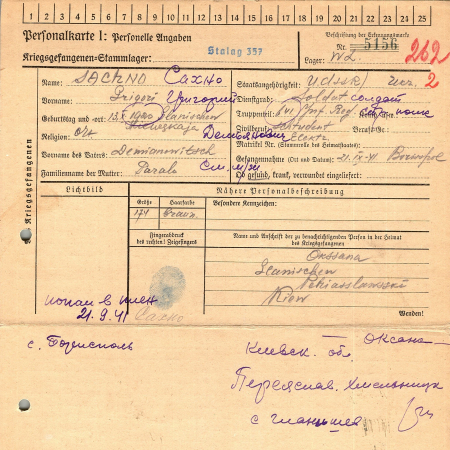 1 2 3 4 5 6 7 8 9 10 11 12 13 14 15 16 17 18 19 20 21 22 23 24 25
Personalkarte I: Personelle Angaben
Kriegsgefangenen-Stammlager: Stalag 357
Beschriftung der Erkennungsmarke
Nr. 5156
Lager: 262
Name: SACHNO Сахно
Staatsangehörigkeit: UdSSR 2
Vorname: Grigori Григорий
Dienstgrad: Soldat солдат
Geburtstag und -ort:
Truppenteil: Inf. Reg.
Religion: Ort
Zivilberuf: Student Berufs-Gr.:
Matrikel Nr. (Stammrolle des Heimatstaates):
Vorname des Vaters: Demianowitsch
Gefangennahme (Ort und Datum): 21.IX-41 Borispol
Familienname der Mutter:
Ob gesund, krank, verwundet eingeliefert:
Kriegsgefangenen
Lichtbild
Nähere Personalbeschreibung
Größe Haarfarbe Besondere Kennzeichen:
174 braun
Fingerabdruck
des rechten! Zeigefingers
Name und Anschrift der zu benachrichtigenden Person in der Heimat
des Kriegsgefangenen
Okssana
Kiew
попал в плен
21.9.41 Сахно
с. Борисполь
Оксана
Киевск. об.
Переяслав. Хмельницк